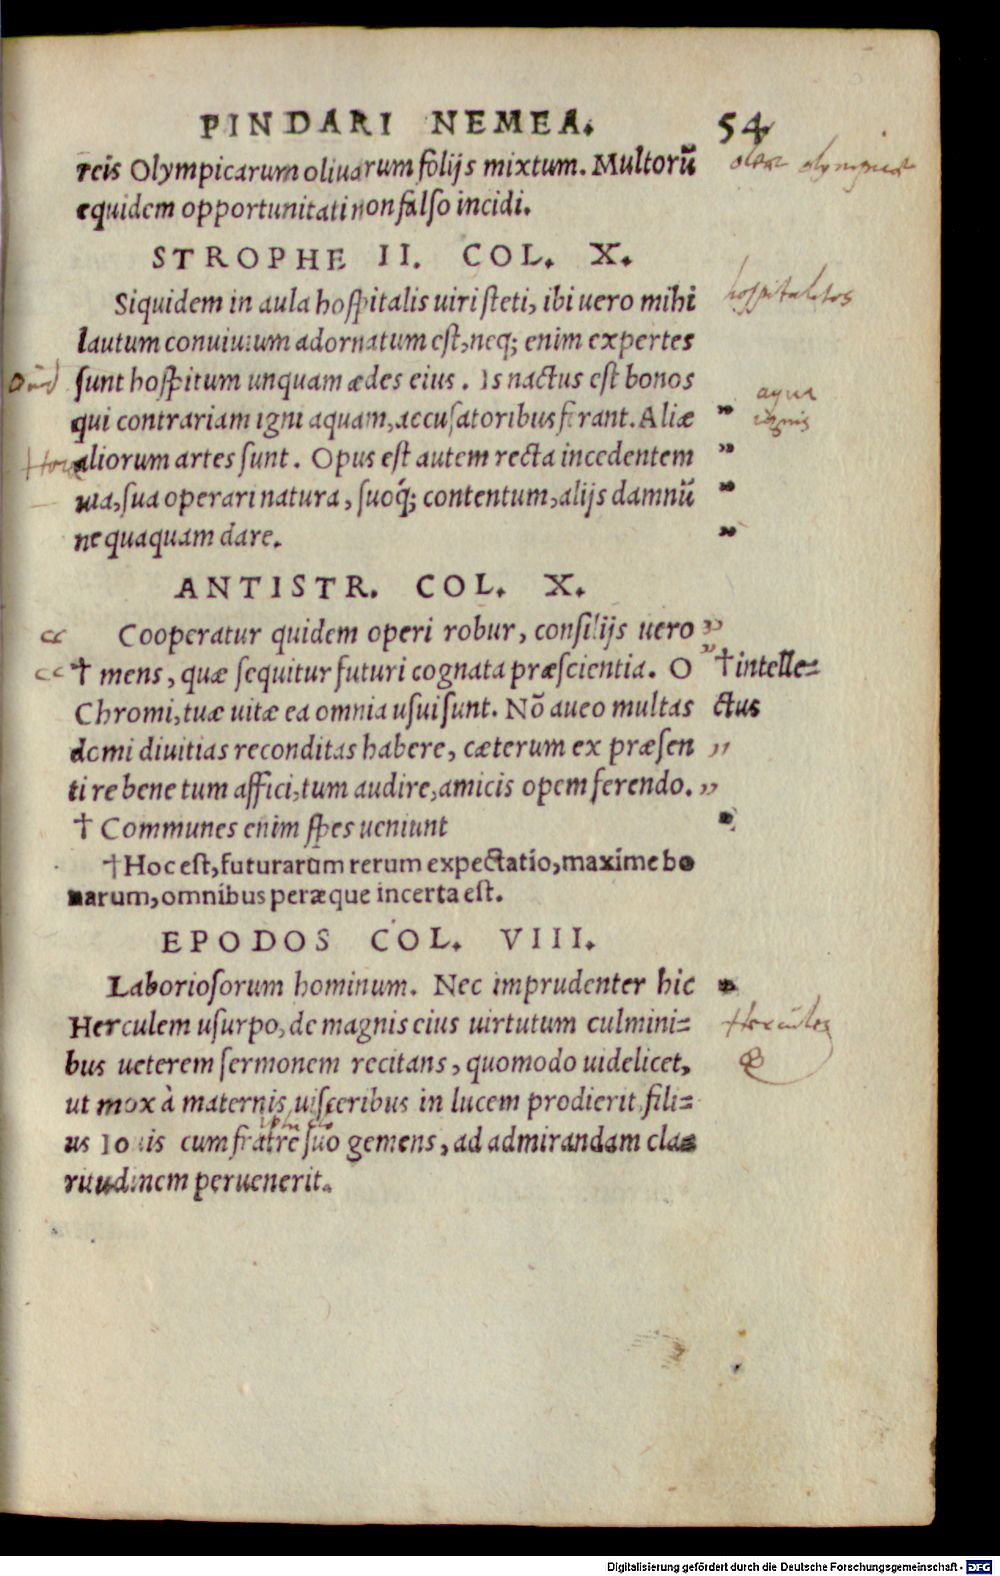 PINDARI NEMEA. 54
reis Olympicarum oliuarum folijs mixtum. Multorũ
equidem opportunitati non falso incidi.
STROPHE II. COL. X.
Siquidem in aula hospitalis uiri steti, ibi uero mihi
hospitalitas
lautum conuiuium adornatum est, neq; enim expertes
sunt hospitum unquam ædes eius. Is nactus est bonos
aqua
qui contrariam igni aquam, accusatoribus ferant. Aliæ "
ignis
aliorum artes sunt. Opus est autem recta incedentem "
uia, sua operari natura, suoq́; contentum, alijs damnũ "
nequaquam dare. "
ANTISTR. COL. X.
Cooperatur quidem operi robur, consilijs uero "
† mens, quæ sequitur futuri cognata præscientia. O " † intelle=
Chromi, tuæ uitæ ea omnia usui sunt. Nõ aueo multas ctus
domi diuitias reconditas habere, cæterum ex præsen "
ti re bene tum affici, tum audire, amicis opem ferendo. "
† Communes enim spes ueniunt "
† Hoc est, futurarum rerum expectatio, maxime bo
narum, omnibus peræque incerta est.
EPODOS COL. VIII.
Laboriosorum hominum. Nec imprudenter hic "
Herculem usurpo, de magnis eius uirtutum culmini=
Hercules
bus ueterem sermonem recitans, quomodo uidelicet,
ut mox à maternis uisceribus in lucem prodierit, fili=
us Iouis cum fratre suo gemens, ad admirandam cla
ritudinem peruenerit.
Digitalisierung gefördert durch die Deutsche Forschungsgemeinschaft - DFG